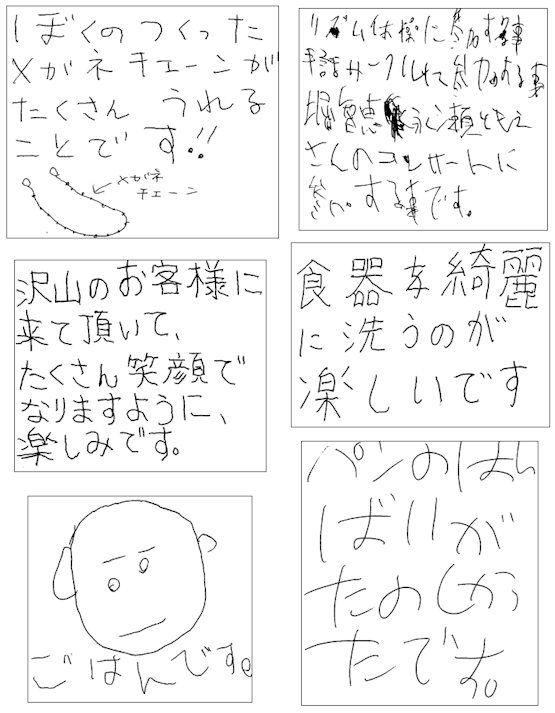 ぼくのつくった
メガネチェーンが
たくさん うれる
ことです!!
メガネ
チェーン
リズム体操に参加する事
手話サークルにて参加する事
さんのコンサートに
参加する事です。
沢山のお客様に
来て頂いて、
たくさん笑顔で
なりますように、
楽しみです。
食器を綺麗
に洗うのが
楽しいです
ごはんです。
パンのはん
ばいが
たのしかっ
たです。